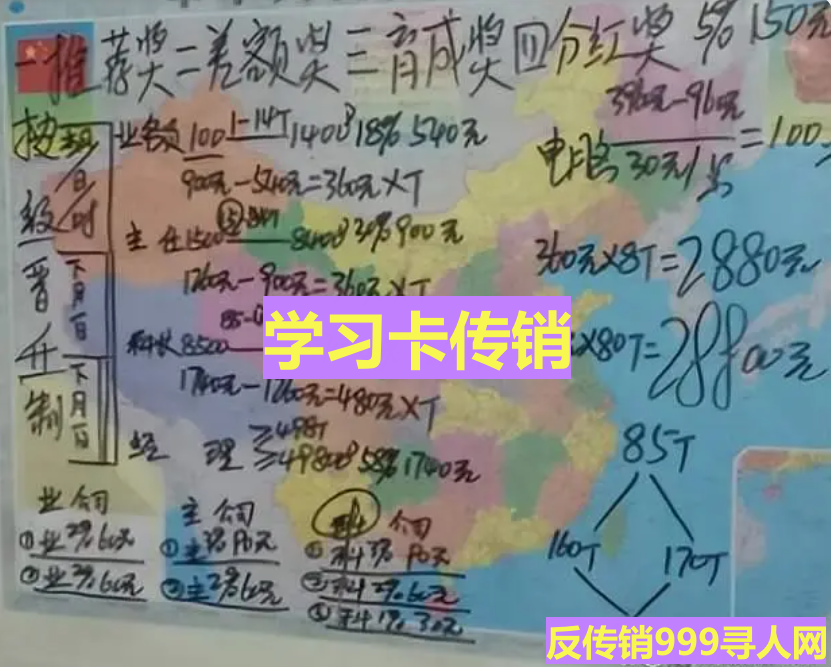 一推荐奖二差额奖三育成奖四分红奖 5% 150元
按级晋升制
业务员 100 1-14T 1400 18% 540元
900元-540元=360元×T
主任 1500 8400 30% 900元
1260元-900元=360元×T
科长 8500
1740元-1260元=480元×T
经理 ≥498T
≥49800 58% 1740元
下月一日
下月一日
3960元-960元
电脑 30元/
=100
360元×8T=2880元
×80T=28800元
85T
160T 170T
业 公司
①业2%60元
②业2%60元
主 公司
①主3%90元
②主2%60元
科 公司
①科3%90元
②科2%60元
③科1%30元
学习卡传销
反传销999寻人网